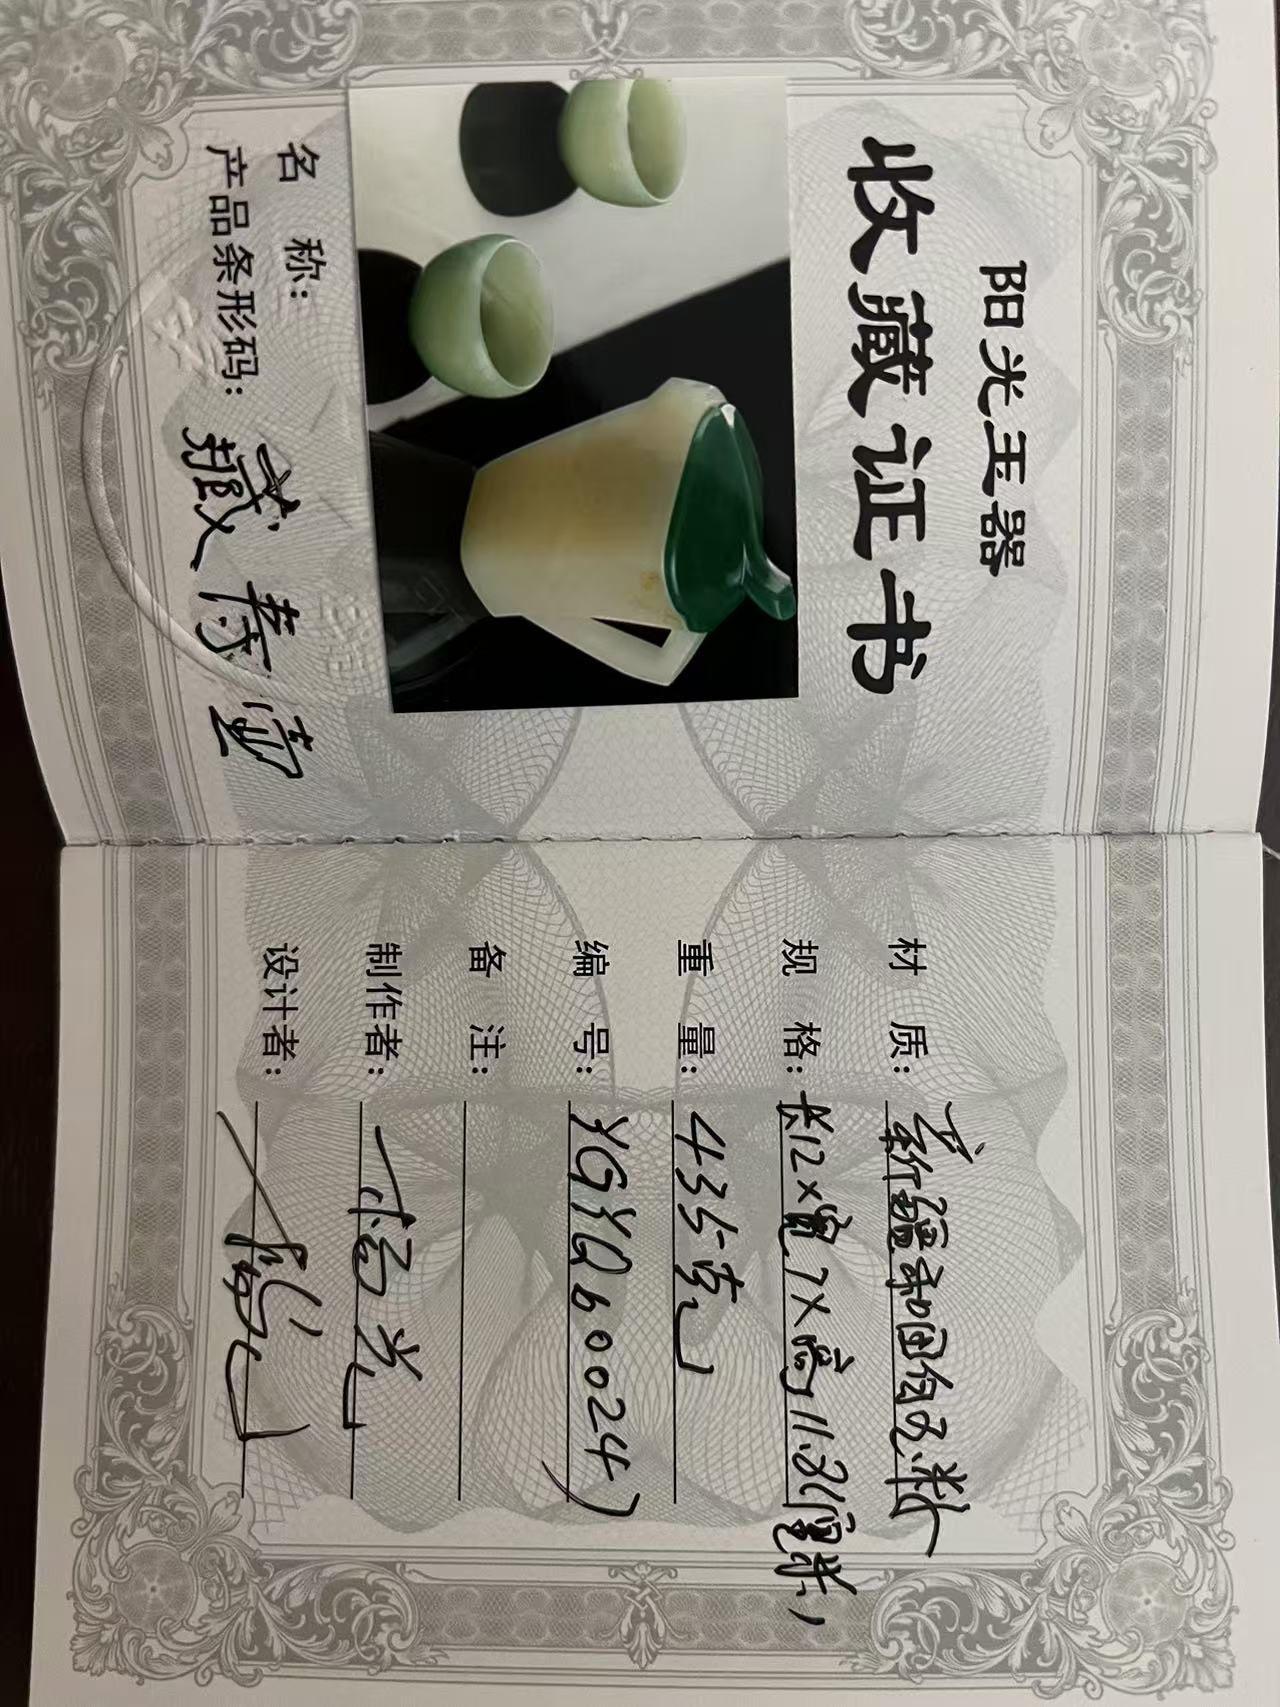 阳光玉器
收藏证书
名 称:
产品条形码: 藏寿壶
材 质: 新疆和田白玉料
规 格: 长12×宽7×高11.2厘米
重 量: 435克
编 号: YGYQ60024
备 注:
制作者: 杨光
设计者: 杨光